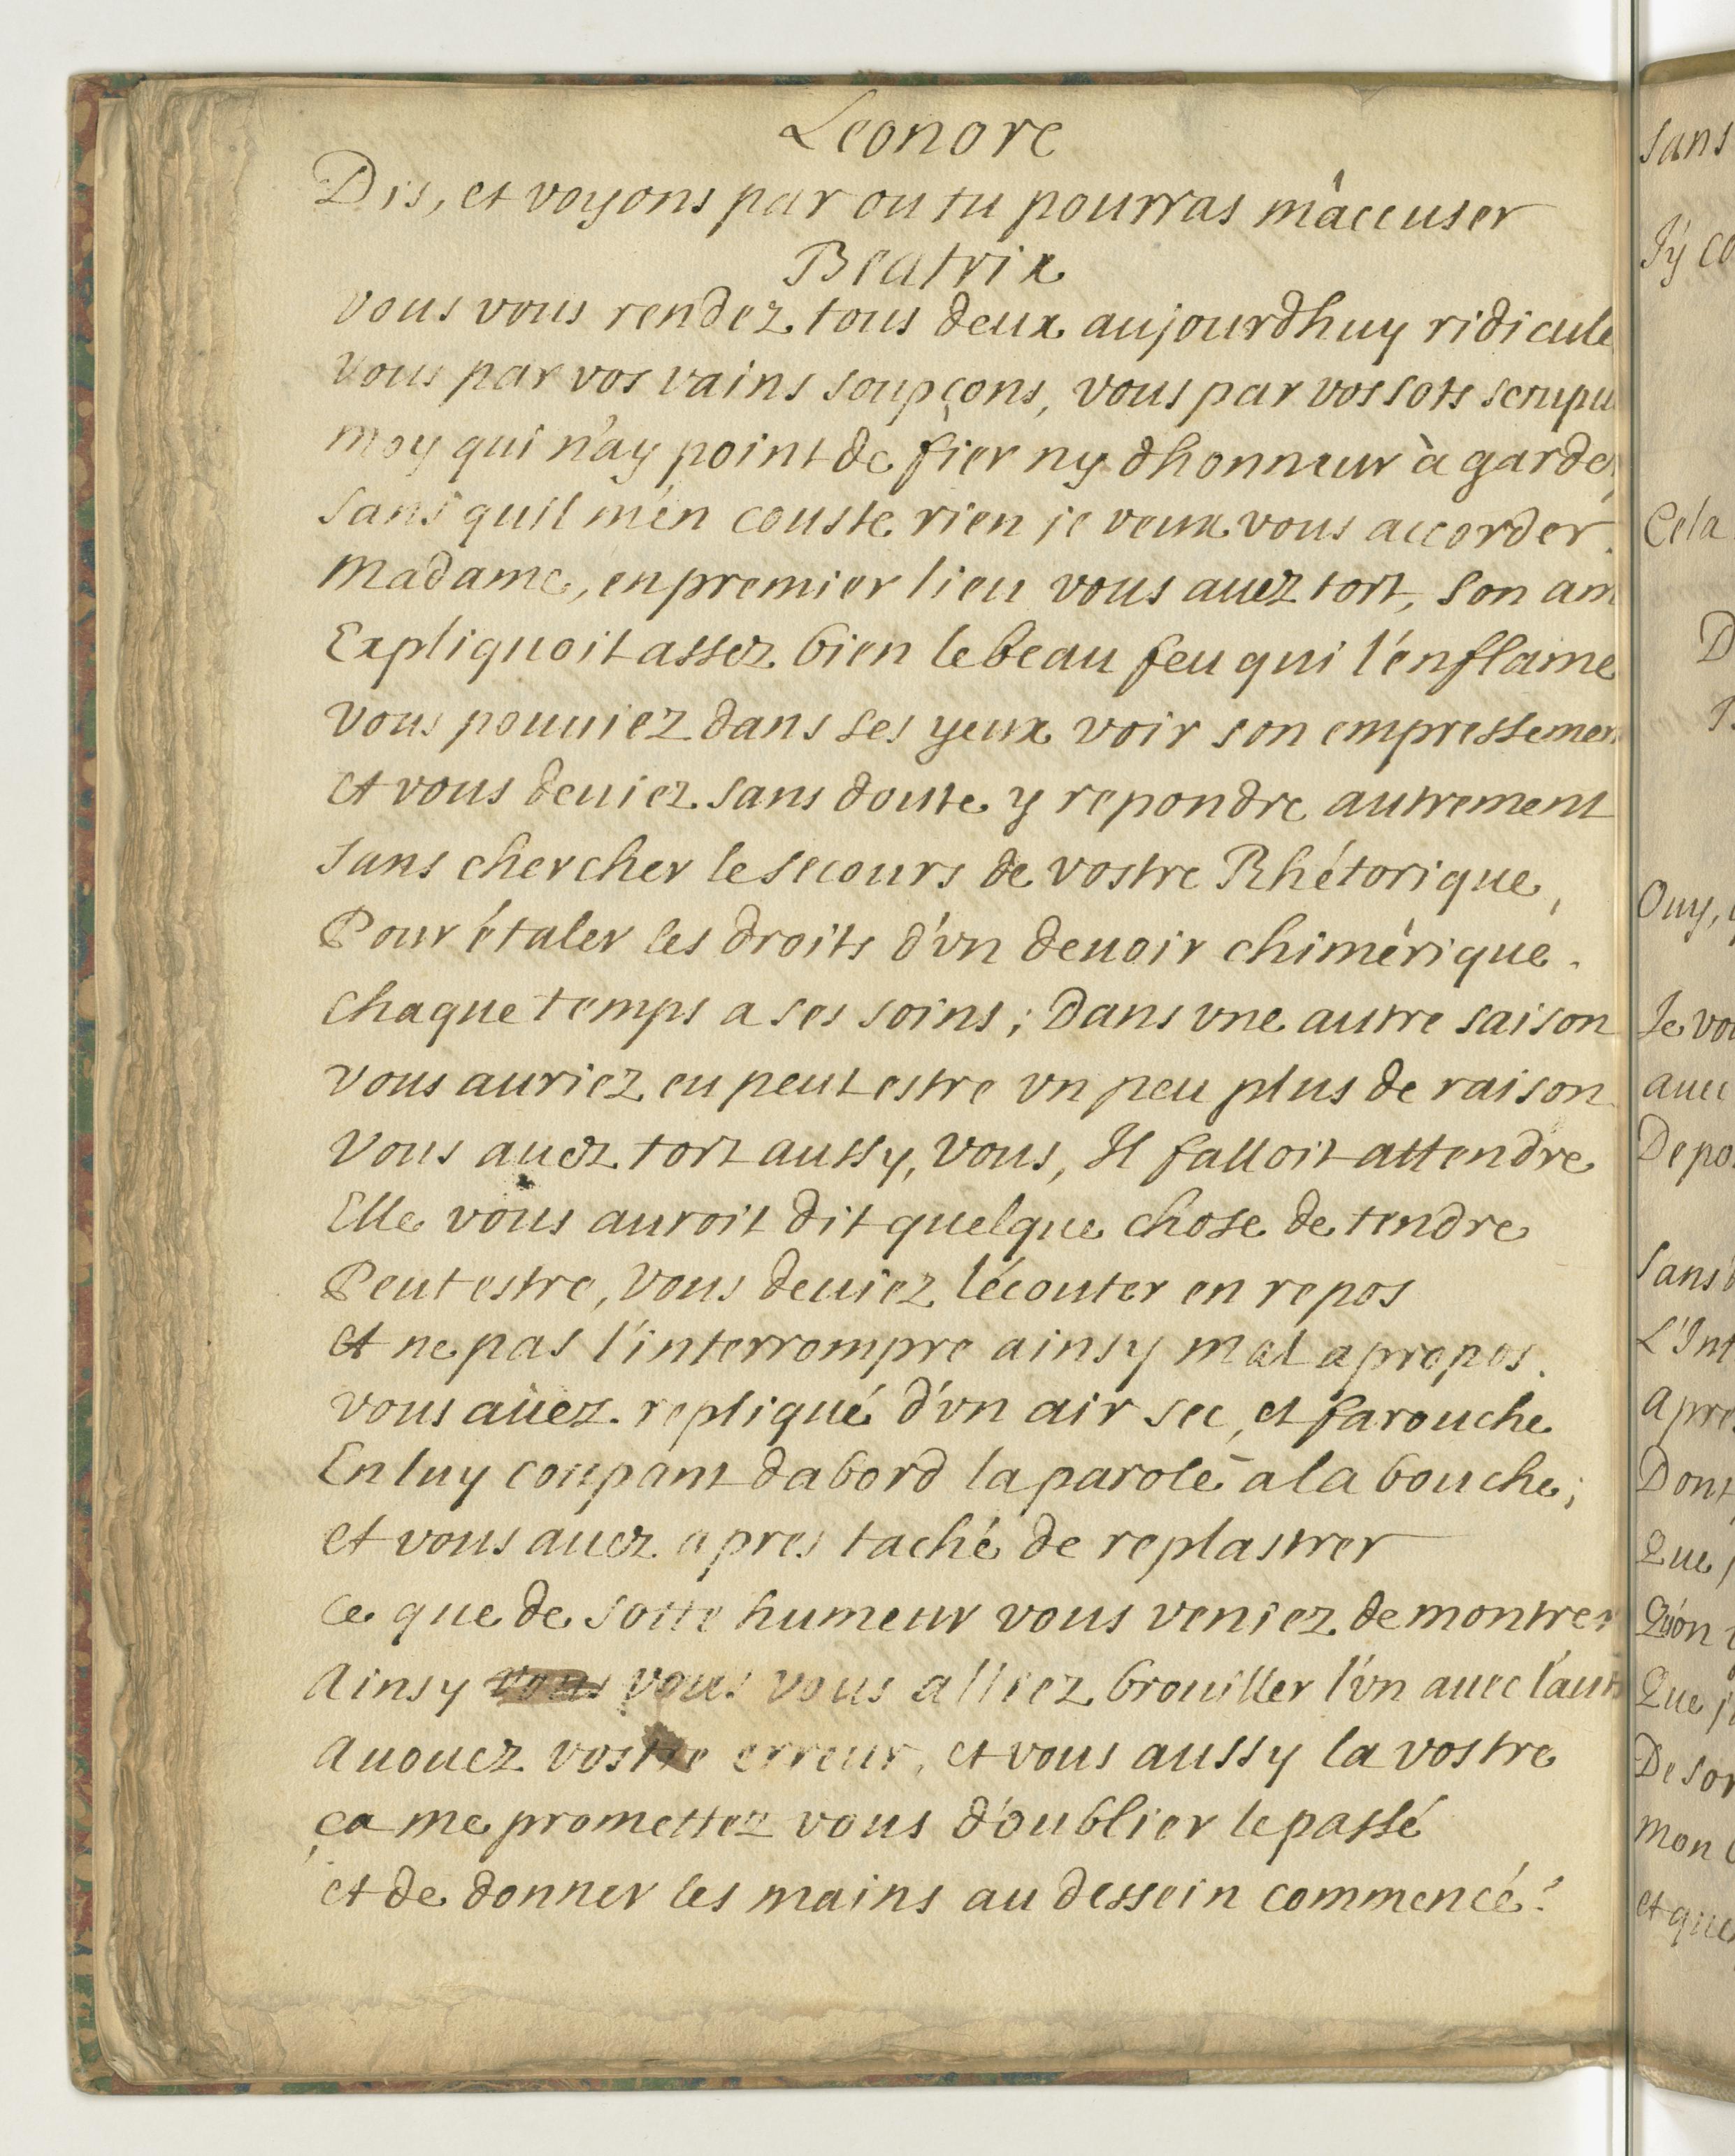 Leonore
Dis, et voyons par ou tu pourras m'accuser
Beatrix
vous vous rendez tous deux aujourdhuy ridicule
vous par vos vains soupçons, vous par vos sots scrupu
moy qui n'ay point de fier ny dhonneur à garder
sans quil m'en couste rien je veux vous accorder.
Madame, en premier lieu vous auez tort, son am
Expliquoit assez bien le beau feu qui l'enflame
vous pouuiez dans ses yeux voir son empressemen
et vous deuiez sans doute y repondre autrement
sans chercher le secours de vostre Rhétorique,
Pour étaler les droits d'vn deuoir chimérique.
chaque temps a ses soins; Dans vne autre saison
vous auriez eu peut estre vn peu plus de raison
vous auez tort aussy, vous, Il falloit attendre
Elle vous auroit dit quelque chose de tendre
Peut estre, vous deuiez l'écouter en repos
et ne pas l'interrompre ainsy mal apropos.
vous auez repliqué d'vn air sec, et farouche
En luy coupant dabord la parole a la bouche;
et vous auez apres taché de replastrer
ce que de sotte humeur vous veniez de montrer
Ainsy vous vous vous alliez brouiller l'vn auec l'autr
Auouez vostre erreur, et vous aussy la vostre
ça me promettez vous d'oublier le passé
et de donner les mains au dessein commencé?
sans
J'y co
Cela
D
Ouy,
Je vou
auec
De po
Sans d
L'Int
Apres
Dont
Que
Qu'on
Que j
De sor
Mon
et que